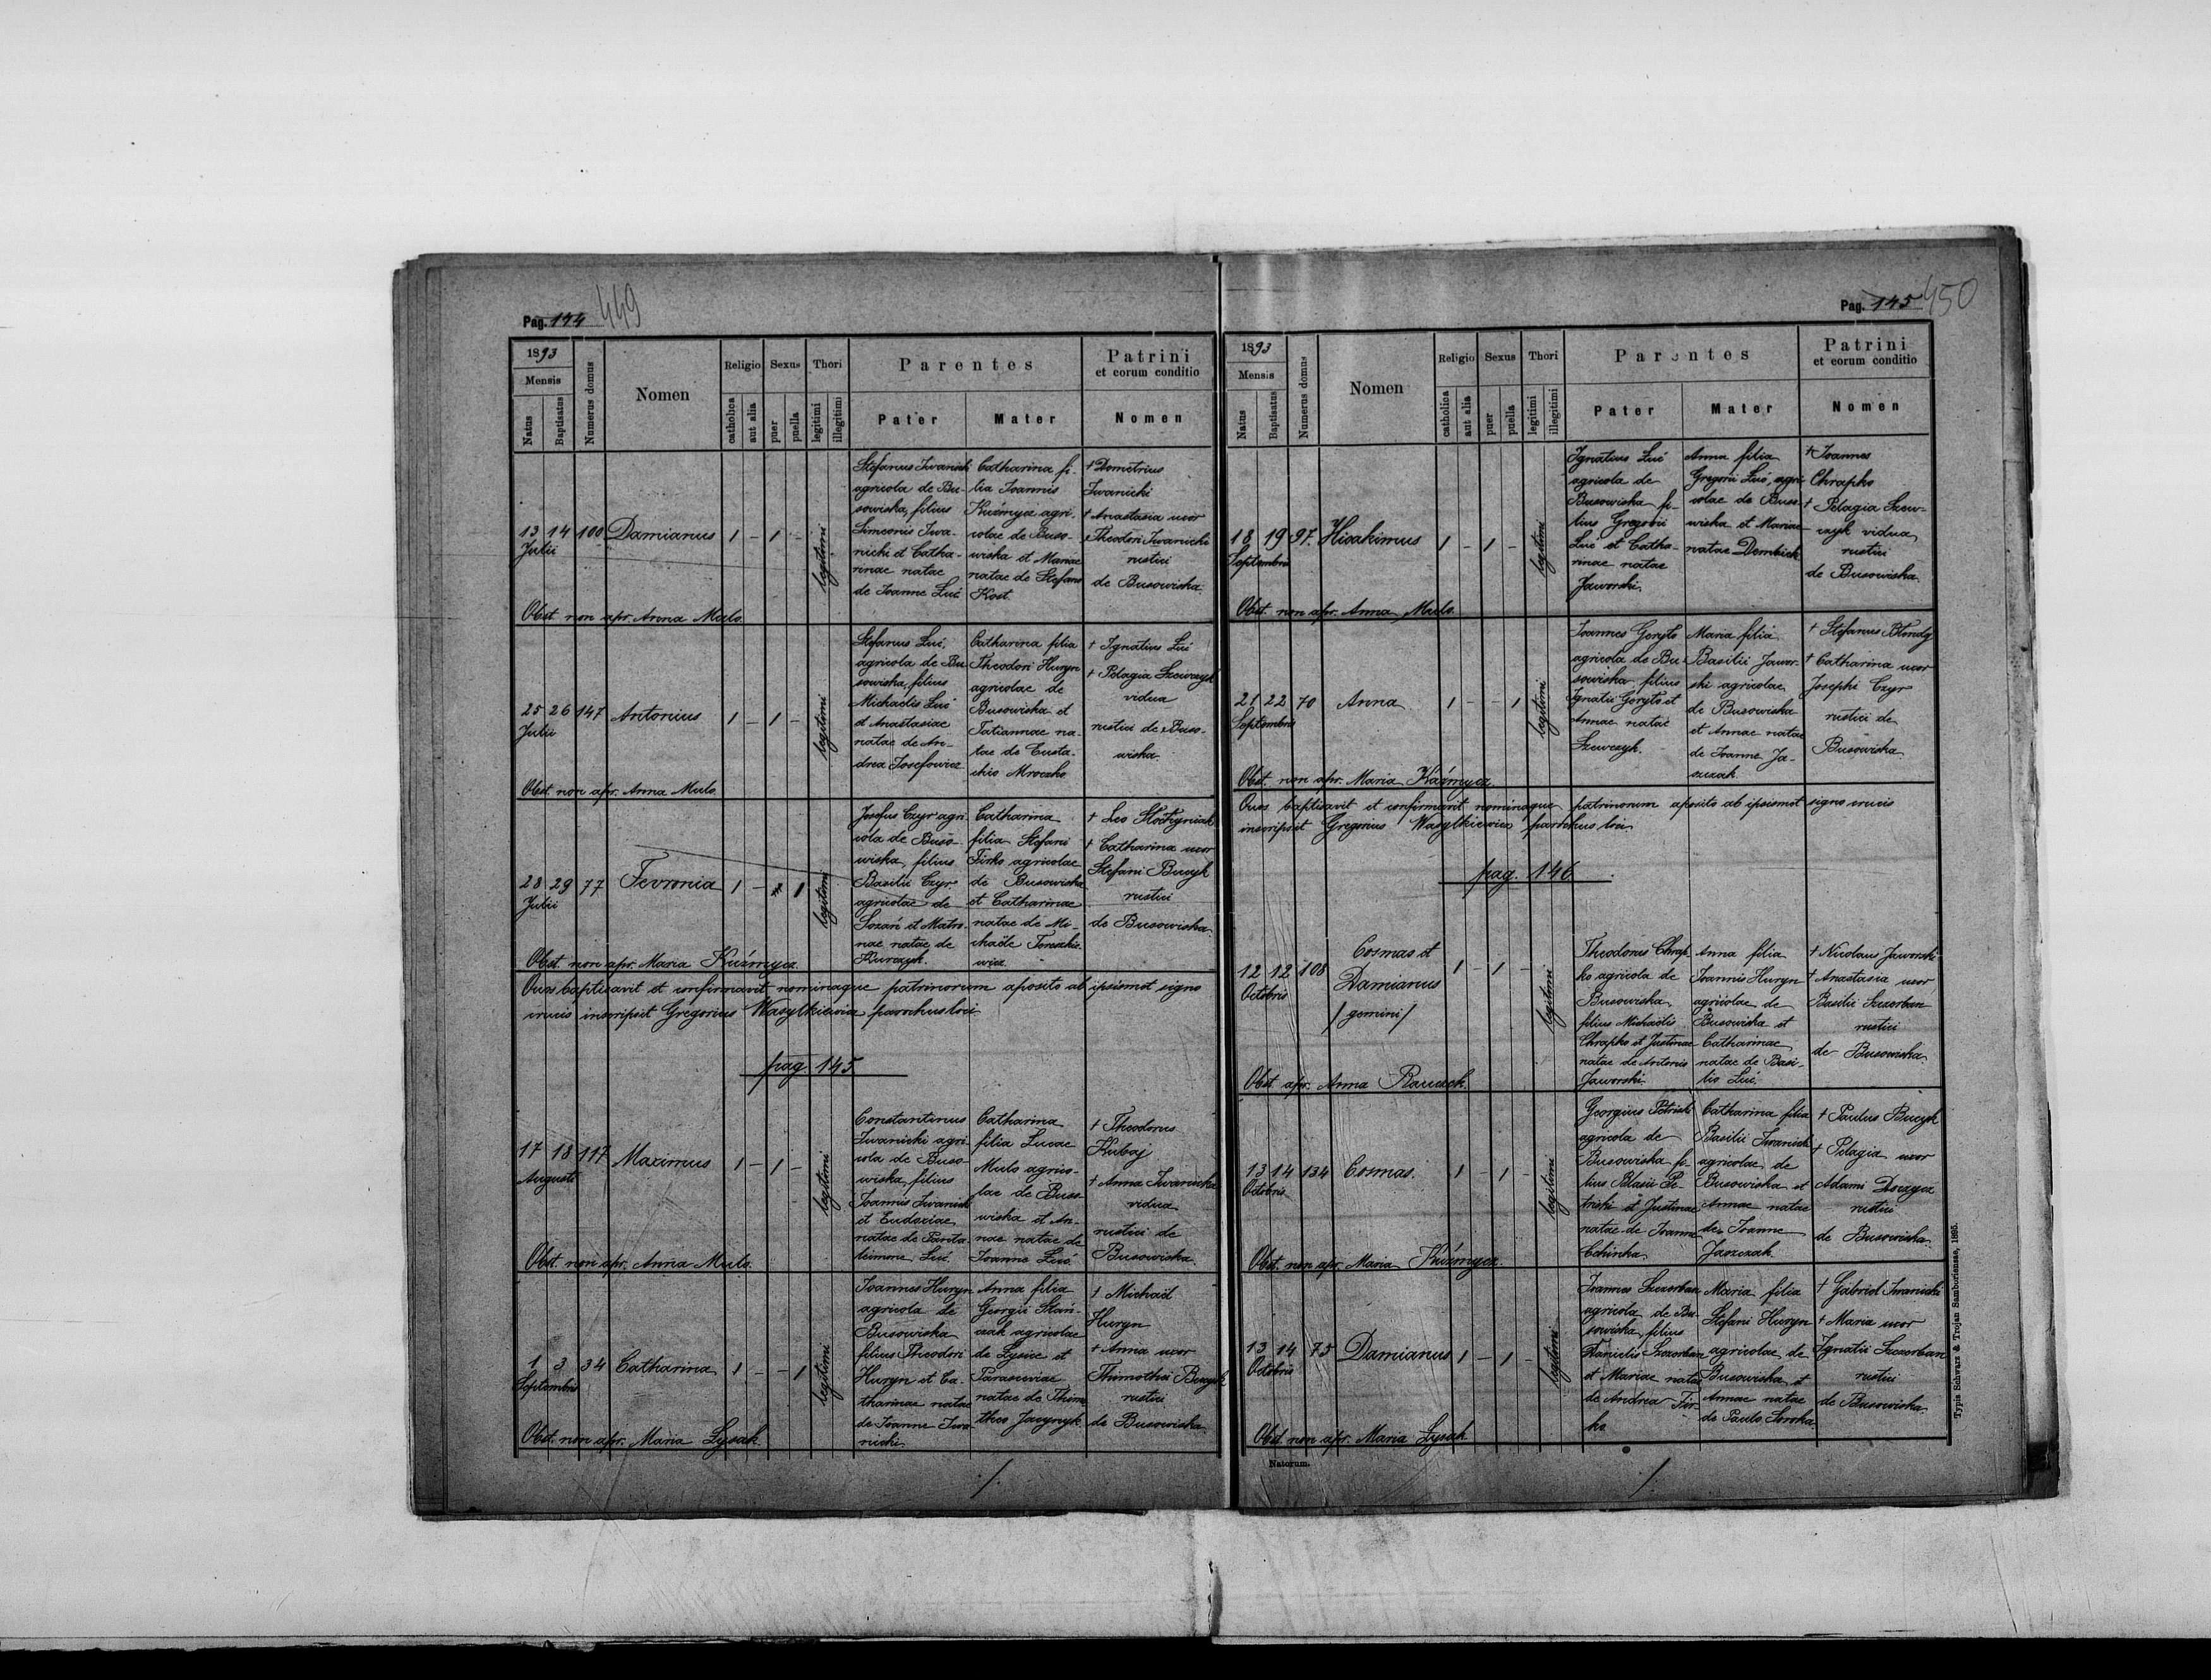 Pag. 144 449
1893
Mensis
Natus
Baptisatus
Numerus domus
Nomen
Religio
catholica
aut alia
Sexus
puer
puella
Thori
legitimi
illegitimi
Parentes
Pater
Mater
Patrini
et eorum conditio
Nomen
13 14 100 Damianus 1 - 1 - legitimi
Julii
Stefanus Iwanicki
agricola de Bu-
sowiska, filius
Simeonis Iwa-
nicki et Catha-
rinae natae
de Joanne Luć
Catharina fi-
lia Joannis
Kuźmycz agri-
colae de Buso-
wiska et Mariae
natae de Stefano
Kost.
+ Demetrius
Iwanicki
+ Anastasia uxor
Theodori Iwanicki
rustici
de Busowiska
Obst. non apr. Anna Mulo.
25 26 147 Antonius 1 - 1 - legitimi
Julii
Stefanus Luć,
agricola de Bu
sowiska, filius
Michaelis Luć
et Anastasiae
natae de An-
drea Josefowicz
Catharina filia
Theodori Huryn
agricolae de
Busowiska et
Tatiannae na-
tae de Eusta-
chio Mroczko
+ Ignatius Luć
+ Pelagia Szewczyk
vidua
rustici de Buso-
wiska
Obst. non apr. Anna Mulo.
28 29 77 Fevronia 1 - 1 legitimi
Julii
Josefus Czyr agri
cola de Buso-
wiska, filius
Basilii Czyr
agricolae de
Sozań et Matro
nae natae de
Kurczyk.
Catharina
filia Stefani
Firko agricolae
de Busowiska
et Catharinae
natae de Mi-
chaële Tereszke
wicz
+ Leo
+ Catharina uxor
Stefani Bucyk
rustici
de Busowiska
Obst. non apr. Maria Kuźmycz.
Quos baptisavit et confirmavit nominaque patrinorum aposito ab ipsismet signo
crucis inscripsit Gregorius Wasylkiewicz parochus loci
pag. 145
17 18 117 Maximus 1 - 1 - legitimi
Augusti
Constantinus
Iwanicki agri-
cola de Buso-
wiska, filius
Joannis Iwanicki
et Eudoxiae
natae de Panta
leimone Luć.
Catharina
filia Lucae
Mulo agrico-
lae de Buso
wiska et An-
nae natae de
Joanne Luć.
+ Theodorus
Kubaj
+ Anna Iwanicka
vidua
rustici de
Busowiska
Obst. non apr. Anna Mulo.
1 3 34 Catharina 1 - - 1 legitimi
Septembris
Joannes Huryn
agricola de
Busowiska
filius Theodori
Huryn et Ca-
tharinae natae
de Joanne Iwa
nicki.
Anna filia
Georgii Stań-
czak agricolae
de Łysice et
Parasceviae
natae de Thimo
theo Jacynyk
+ Michaël
Huryn
+ Anna uxor
Thimothei Bucyk
rustici
de Busowiska
Obst. non apr. Maria Łysak.
Pag. 145 450
1893
Mensis
Natus
Baptisatus
Numerus domus
Nomen
Religio
catholica
aut alia
Sexus
puer
puella
Thori
legitimi
illegitimi
Parentes
Pater
Mater
Patrini
et eorum conditio
Nomen
18 19 97. Hioakimus 1 - 1 - legitimi
Septembris
Ignatius Luć
agricola de
Busowiska fi-
lius Gregorii
Luć et Catha-
rinae natae
Jaworski.
Anna filia
Gregorii Luć, agri
colae de Buso
wiska et Mariae
natae Dembick
+ Joannes
Chrapko
+ Pelagia Szew-
czyk vidua
rustici
de Busowiska
Obst. non apr. Anna Mulo.
21 22 70 Anna 1 - - 1 legitimi
Septembris
Joannes Goryto
agricola de Bu-
sowiska filius
Ignatii Goryto et
Annae natae
Szewczyk.
Maria filia
Basilii Jawor-
ski agricolae
de Busowiska
et Annae natae
de Joanne Ja-
szczak
+ Stefanus Blondy
+ Catharina uxor
Josephi Czyr
rustici de
Busowiska
Obst. non apr. Maria Kuźmycz
Quos baptisavit et confirmavit nominaque patrinorum aposito ab ipsismet signo crucis
inscripsit Gregorius Wasylkiewicz parochus loci
pag. 146
12 12 108 Cosmas et
Octobris Damianus 1 - 1 - legitimi
/gemini/
Theodorus Chrap
ko agricola de
Busowiska
filius Michaëlis
Chrapko et Justinae
natae de Antonio
Jaworski
Anna filia
Joannis Huryn
agricolae de
Busowiska et
Catharinae
natae de Basi-
lio Luć.
+ Nicolaus Jaworski
+ Anastasia uxor
Basilii Szczerban
rustici
de Busowiska
Obst. apr. Anna
13 14 134 Cosmas. 1 - 1 - legitimi
Octobris
Georgius Petricki
agricola de
Busowiska fi-
lius Blasii Pe-
tricki et Justinae
natae de Joanne
Cchinka
Catharina filia
Basilii Iwanicki
agricolae de
Busowiska et
Annae natae
de Joanne
Jaszczak
+ Paulus Bucyk
+ Pelagia uxor
Adami Doczycz
rustici
de Busowiska
Obst. non apr. Maria Kuźmycz.
13 14 75 Damianus 1 - 1 - legitimi
Octobris
Joannes Szczerban
agricola de Bu
sowiska, filius
Danielis Szczerban
et Mariae natae
de Andrea Fir-
ko.
Maria filia
Stefani Huryn
agricolae de
Busowiska et
Annae natae
de Paulo Soroka
+ Gabriel Iwanicki
+ Maria uxor
Ignatii Szczerban
rustici
de Busowiska
Obst. non apr. Maria Łysak
Natorum.
Typis Schwarz & Trojan Samboriensae, 1895.